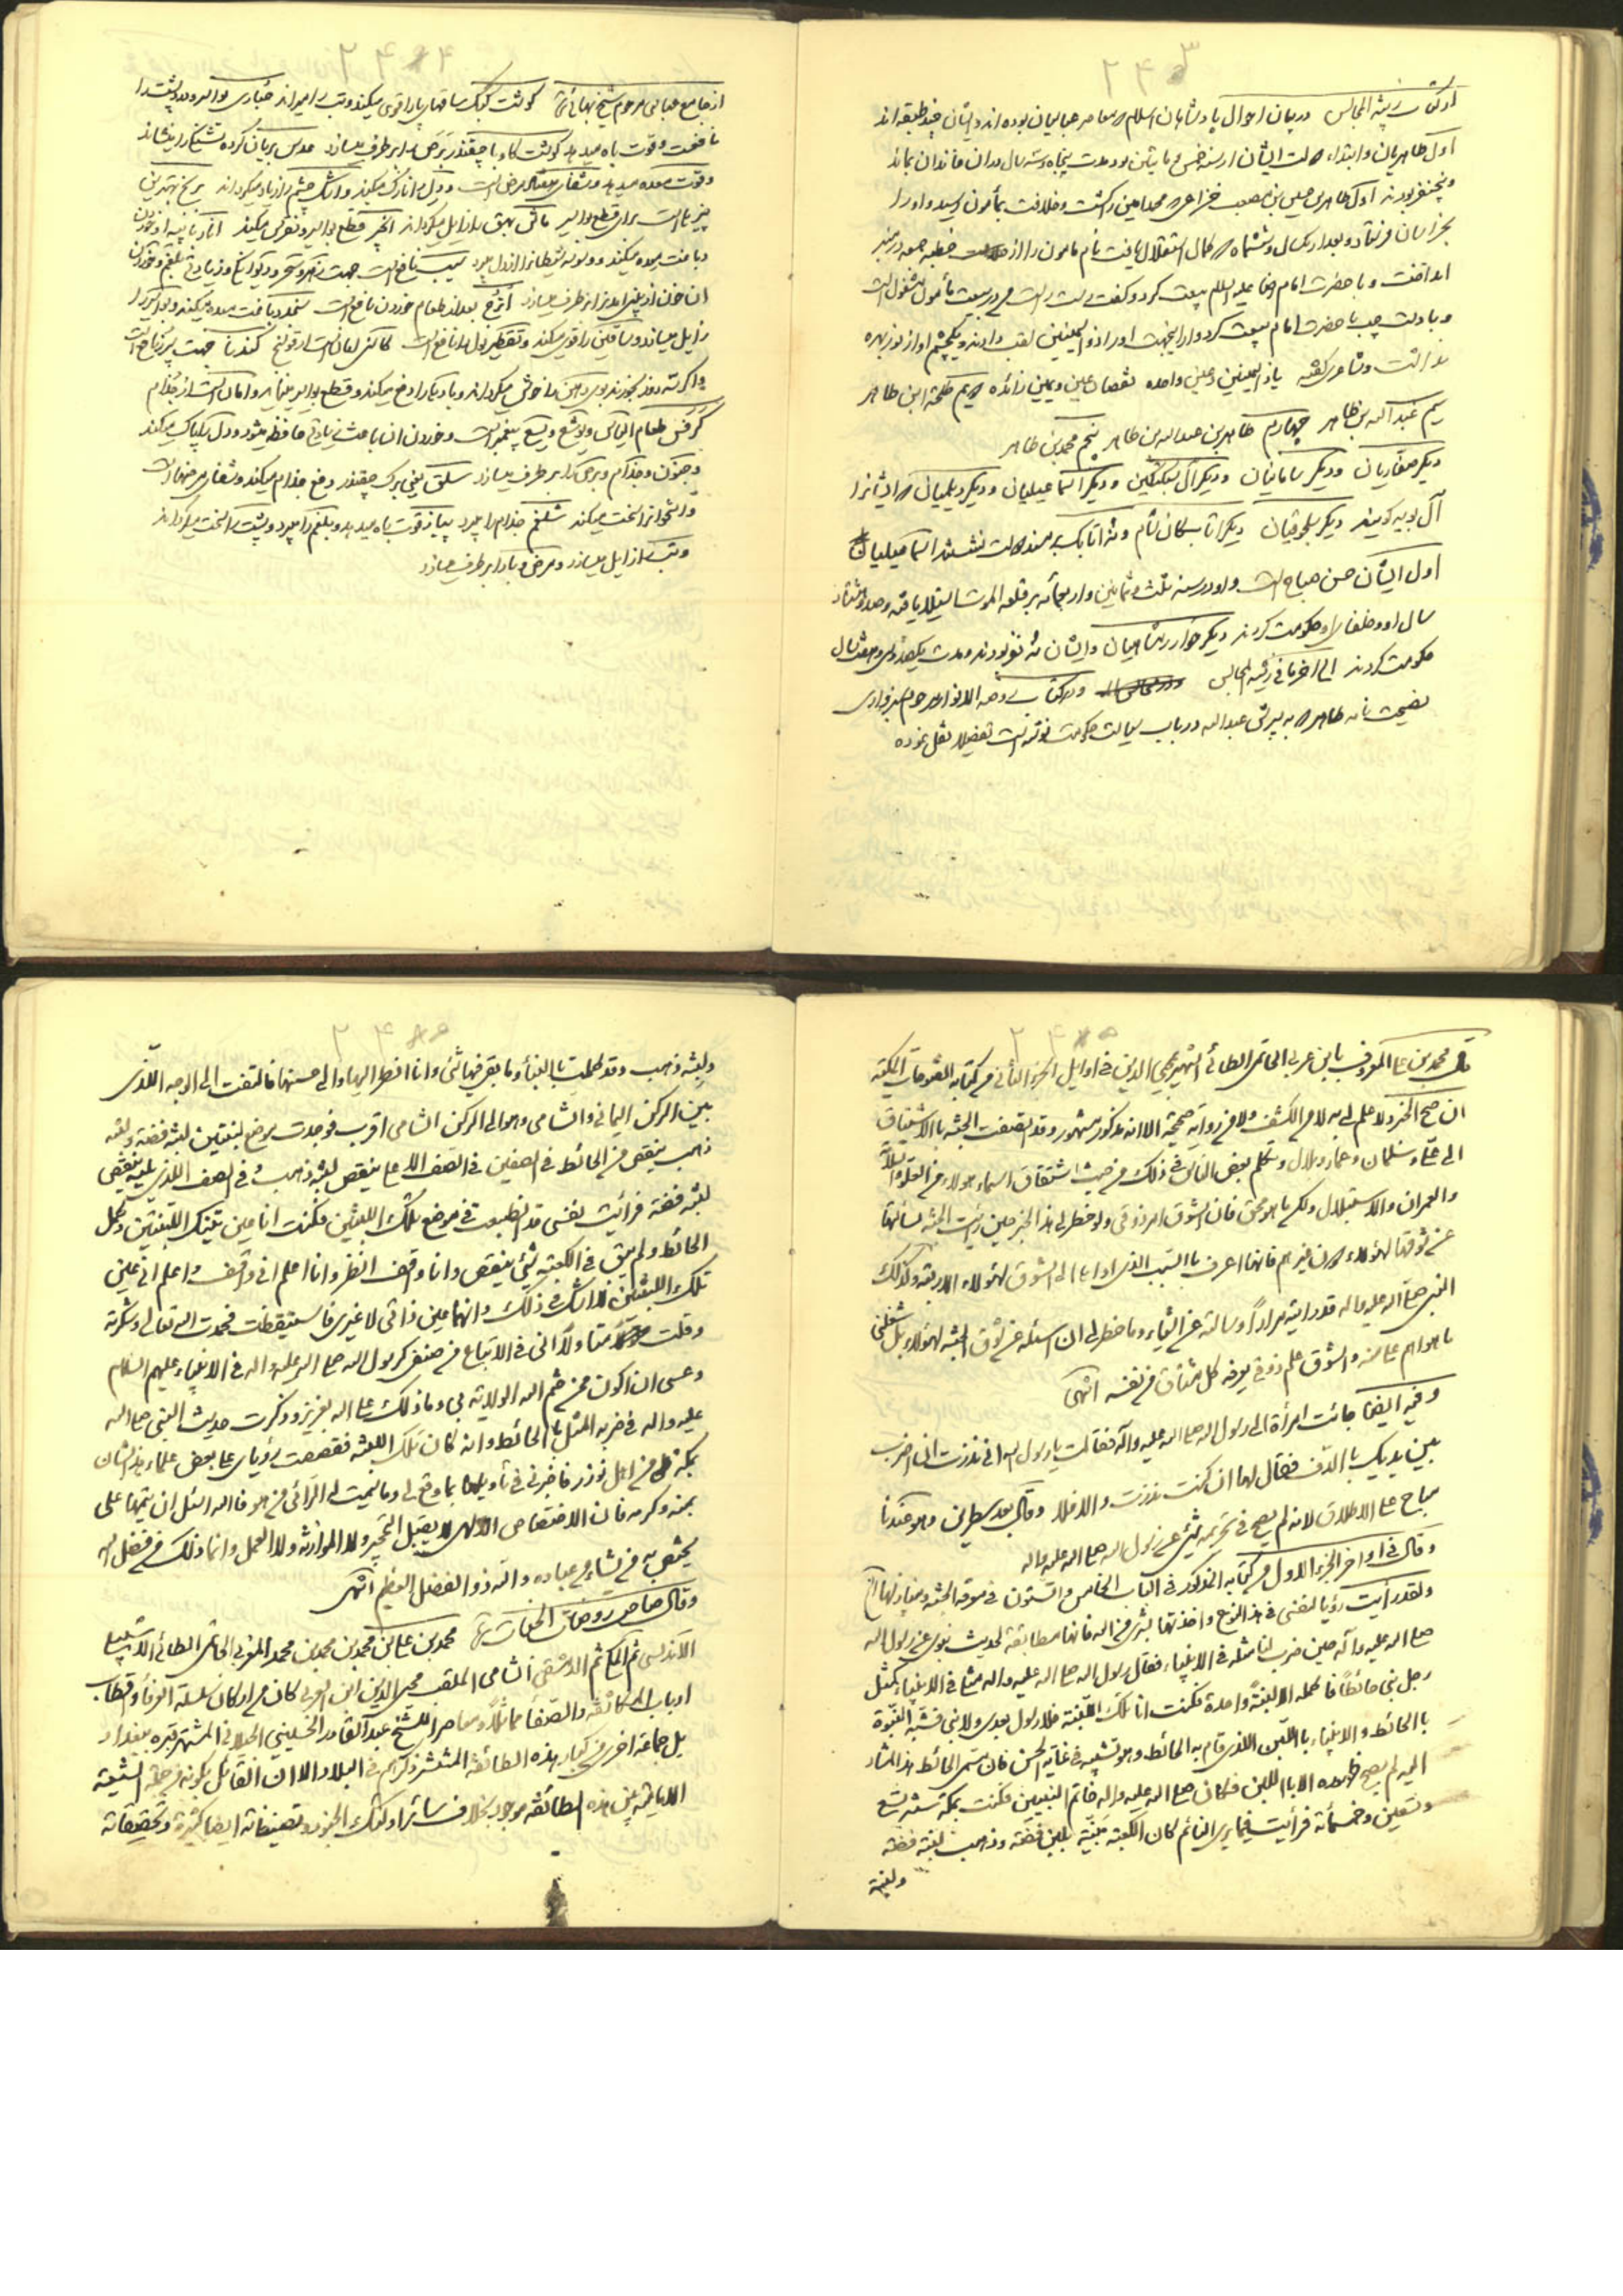 ۲۴۳
در کتاب زینة المجالس در بیان احوال پادشاهان اسلام که معاصر عباسیان بوده اند و ایشان چند طبقه اند
اول طاهریان و ابتداء دولت ایشان از سنه خمس و مأتین بود مدت پنجاه و سه سال در آن خاندان بماند
و پنج نفر بودند اول طاهر بن حسین بن مصعب خزاعی که محمد امین را کشت و خلافت بمأمون رسید و او را
بخراسان فرستاد و بعد از یکسال و ششماه که کمال استقلال یافت نام مامون را از خطبه جمعه در منبر
انداخت و با حضرت امام رضا علیه السلام بیعت کرد و گفت دست راست من در بیعت مأمون مشغول است
و با دست چپ با حضرت امام بیعت کرد و از اینجهت او را ذو الیمینین لقب دادند و یکچشم او از نور بهره
نداشت و شاعری گفته یا ذا الیمینین و عین واحده نقصان عین و یمین زائده دویم طلحة ابن طاهر
سیم عبد اله بن طاهر چهارم طاهر بن عبداله بن طاهر پنجم محمد بن طاهر
دیگر صفاریان و دیگر سامانیان و دیگر آل سبکتکین و دیگر اسماعیلیان و دیگر دیلمیان که ایشانرا
آل بویه گویند دیگر سلجوقیان دیگر اتابکان شام و نه اتابک بر مسند دولت نشستند اسماعیلیان
اول ایشان حسن صباح است و او در سنه ثلث و ثمانین و اربعمائه بر قلعه الموت استیلا یافته و صد و هفتاد
سال او و خلفای او حکومت کردند دیگر خوارزمشاهیان و ایشان نه نفر بودند و مدت یکصد و سی و هفت سال
حکومت کردند الی آخر ما فی زینة المجالس و در کتاب روضه الانوار مرحوم سبزواری
نصیحت نامه طاهر که به پسرش عبداله در باب سیاست حکومت نوشته است تفصیلا نقل نموده
۲۴۴
از جامع عباسی مرحوم شیخ بهائی گوشت کبک ساقهای پا را قوی میکند و تب را میراند خیار بواسیر و درد پشت را
نافعست و قوت باه میدهد گوشت گاو با چقندر برص را بر طرف میسازد عدس بریان کرده تشنگی را بنشاند
و قوت معده میدهد و شفای مرض است و دل را نازک میکند و اشک چشم را زیاد میگرداند برنج بهترین
چیزها است برای قطع بواسیر ماش بهق را زایل میگرداند انجیر قطع بواسیر و نقرس میکند انار با پیه او خوردن
دباغت معده میکند و وسوسه شیطانرا از دل میبرد سیب نافع است جهت زهر و سحر و دیوانگی و زیادتی بلغم و خوردن
آن خون از بینی آمدنرا بر طرف میسازد اترج بعد از طعام خوردن نافع است سنجد دباغت معده میکند و بواسیر را
زایل میسازد و ساقین را قوی میکند و تقطیر بول را نافع است کاسنی امان است از قولنج گندنا جهت سپرز نافع است
و اگر سه روز بخورند بوی دهن را خوش میگرداند و بادها را دفع میکند و قطع بواسیر مینماید و امان است از جذام
کرفس طعام الیاس و یوشع و یسع پیغمبر است و خوردن آن باعث زیادتی حافظه میشود و دل را پاک میکند
و جنون و جذام و برص را بر طرف میسازد سلق یعنی برک چقندر دفع جذام میکند و شفای مرضها است
و استخوانرا سخت میکند شلغم جذام را میبرد پیاز قوت باه میدهد و بلغم را میبرد و پشت را سخت میگرداند
و تب را زایل میسازد و مرض وبا را بر طرف میسازد
۲۴۵
قال محمد بن علی المعروف بابن عربی الحاتمی الطائی الشهیر بمحیی الدین فی اوایل الجزء الثانی من کتابه الفتوحات المکیة
ان صح الخبر و لا علم لی به لا من الکشف و لا من روایة صحیحة الا انه مذکور مشهور و قد اتصفت الجنة بالاشتیاق
الی علی و سلمان و عمار و بلال و تکلم بعض الناس فی ذلک من حیث اشتقاق اسماء هولاء من العلو و السلامة
و العمران و الاستبلال و لکم ما هو محقق فان الشوق امر ذوقی و لو خطر لی هذا الخبر حین رأیت الجنة لسئلتها
عن شوقها لهؤلاء دون غیرهم فانها اعرف بالسبب الذی اداها الی الشوق لهؤلاء الاربعة و کذلک
النبی صلی اله علیه و اله قد رأیته مراراً و سالته عن اشیاء و ما خطر لی ان اسئله عن شوق الجنة لهؤلاء بل شغلنی
ما هو اهم علی منه و الشوق علم ذوقی یعرفه کل مشتاق من نفسه انتهی
و فیه ایضا جائت امرأة الی رسول اله صلی اله علیه و آله فقالت یا رسول اله انی نذرت ان اضرب
بین یدیک بالدف فقال لها ان کنت نذرت و الا فلا و قال بعد سطرین و هو عندنا
مباح علی الاطلاق لانه لم یصح فی تحریمه شیء عن رسول اله صلی اله علیه و اله
و قال فی اواخر الجزء الاول من کتابه المذکور فی الباب الخامس و الستون فی معرفة الجنة و منازلها الخ
و لقد رأیت رؤیا لنفسی فی هذا النوع و اخذتها بشری من اله فانها مطابقة لحدیث نبوی عن رسول اله
صلی اله علیه و آله حین ضرب لنا مثله فی الانبیاء فقال رسول اله صلی اله علیه و اله مثلی فی الانبیاء کمثل
رجل بنی حائطاً فاکمله الا لبنةً واحدة فکنت انا تلک اللبنة فلا رسول بعدی و لا نبی فشبه النبوة
بالحائط و الانبیاء باللبن اللذی قام به الحائط و هو تشبیه فی غایة الحسن فان مسمی الحائط هذا المشار
الیه لم یصح ظهوره الا باللبن فکان صلی اله علیه و اله خاتم النبیین فکنت بمکة سنة تسع
و تسعین و خمسمائة فرأیت فیما یری النائم کان الکعبة مبنیة بلبن فضة و ذهب لبنة فضة
و لبنة
۲۴۵
و لبنة ذهب و قد کملت بالبناء و ما بقی فیها شیء و انا انظر الیها و الی حسنها فالتفت الی الوجه اللذی
بین الرکن الیمانی و الشامی و هو الی الرکن الشامی اقرب فوجدت موضع لبنتین لبنة فضة و لبنة
ذهب ینقص من الحائط فی الصفین فی الصف الاعلی ینقص لبنة ذهب و فی الصف اللذی یلیه ینقص
لبنة فضة فرأیت نفسی قد انطبعت فی موضع تلک اللبنتین فکنت انا عین تینک اللبنتین و کمل
الحائط و لم یبق فی الکعبة شیء ینقص و انا واقف انظر و انا اعلم انی واقف و اعلم انی عین
تلک اللبنتین لا اشک فی ذلک و انهما عین ذاتی لا غیری فاستیقظت فحمدت اله تعالی و شکرته
و قلت متاولاً انی فی الاتباع من صنفی کرسول اله صلی اله علیه و اله فی الانبیاء علیهم السلام
و عسی ان اکون ممن ختم اله الولایة بی و ما ذلک علی اله بعزیز و ذکرت حدیث النبی صلی اله
علیه و اله فی ضربه المثل بالحائط و انه کان تلک اللبنة فقصصت رؤیای علی بعض علماء هذا الشان
بمکة من اهل توزر فاخبرنی فی تأویلها بما وقع لی و ما سمیت له الرائی من هو فاله اسئل ان یتمها علی
بمنه و کرمه فان الاختصاص الالهی لا یقبل التحجیر و لا الموازنة و لا العمل و انما ذلک من فضل اله
یختص به من یشاء من عباده و اله ذو الفضل العظیم انتهی
و قال صاحب روضات الجنات محمد بن علی ابن محمد بن محمد المغربی الحاتمی الطائی الاشبیلی
الاندلسی ثم المکی ثم الدمشقی الشامی الملقب محیی الدین ابن العربی کان من ارکان سلسلة العرفاء و اقطاب
ارباب المکاشفة و الصفا مماثلا و معاصرا للشیخ عبد القادر الحسینی الجیلانی المشتهر قبره ببغداد
بل جماعة اخری من کبار هذه الطائفة المنتشر ذکرهم فی البلاد الا ان القائل بکونه من جملة الشیعة
الامامیة من هذه الطائفة موجود بخلاف سائر اولئک الجنود و تصنیفاته ایضا کثیرة و تحقیقاته